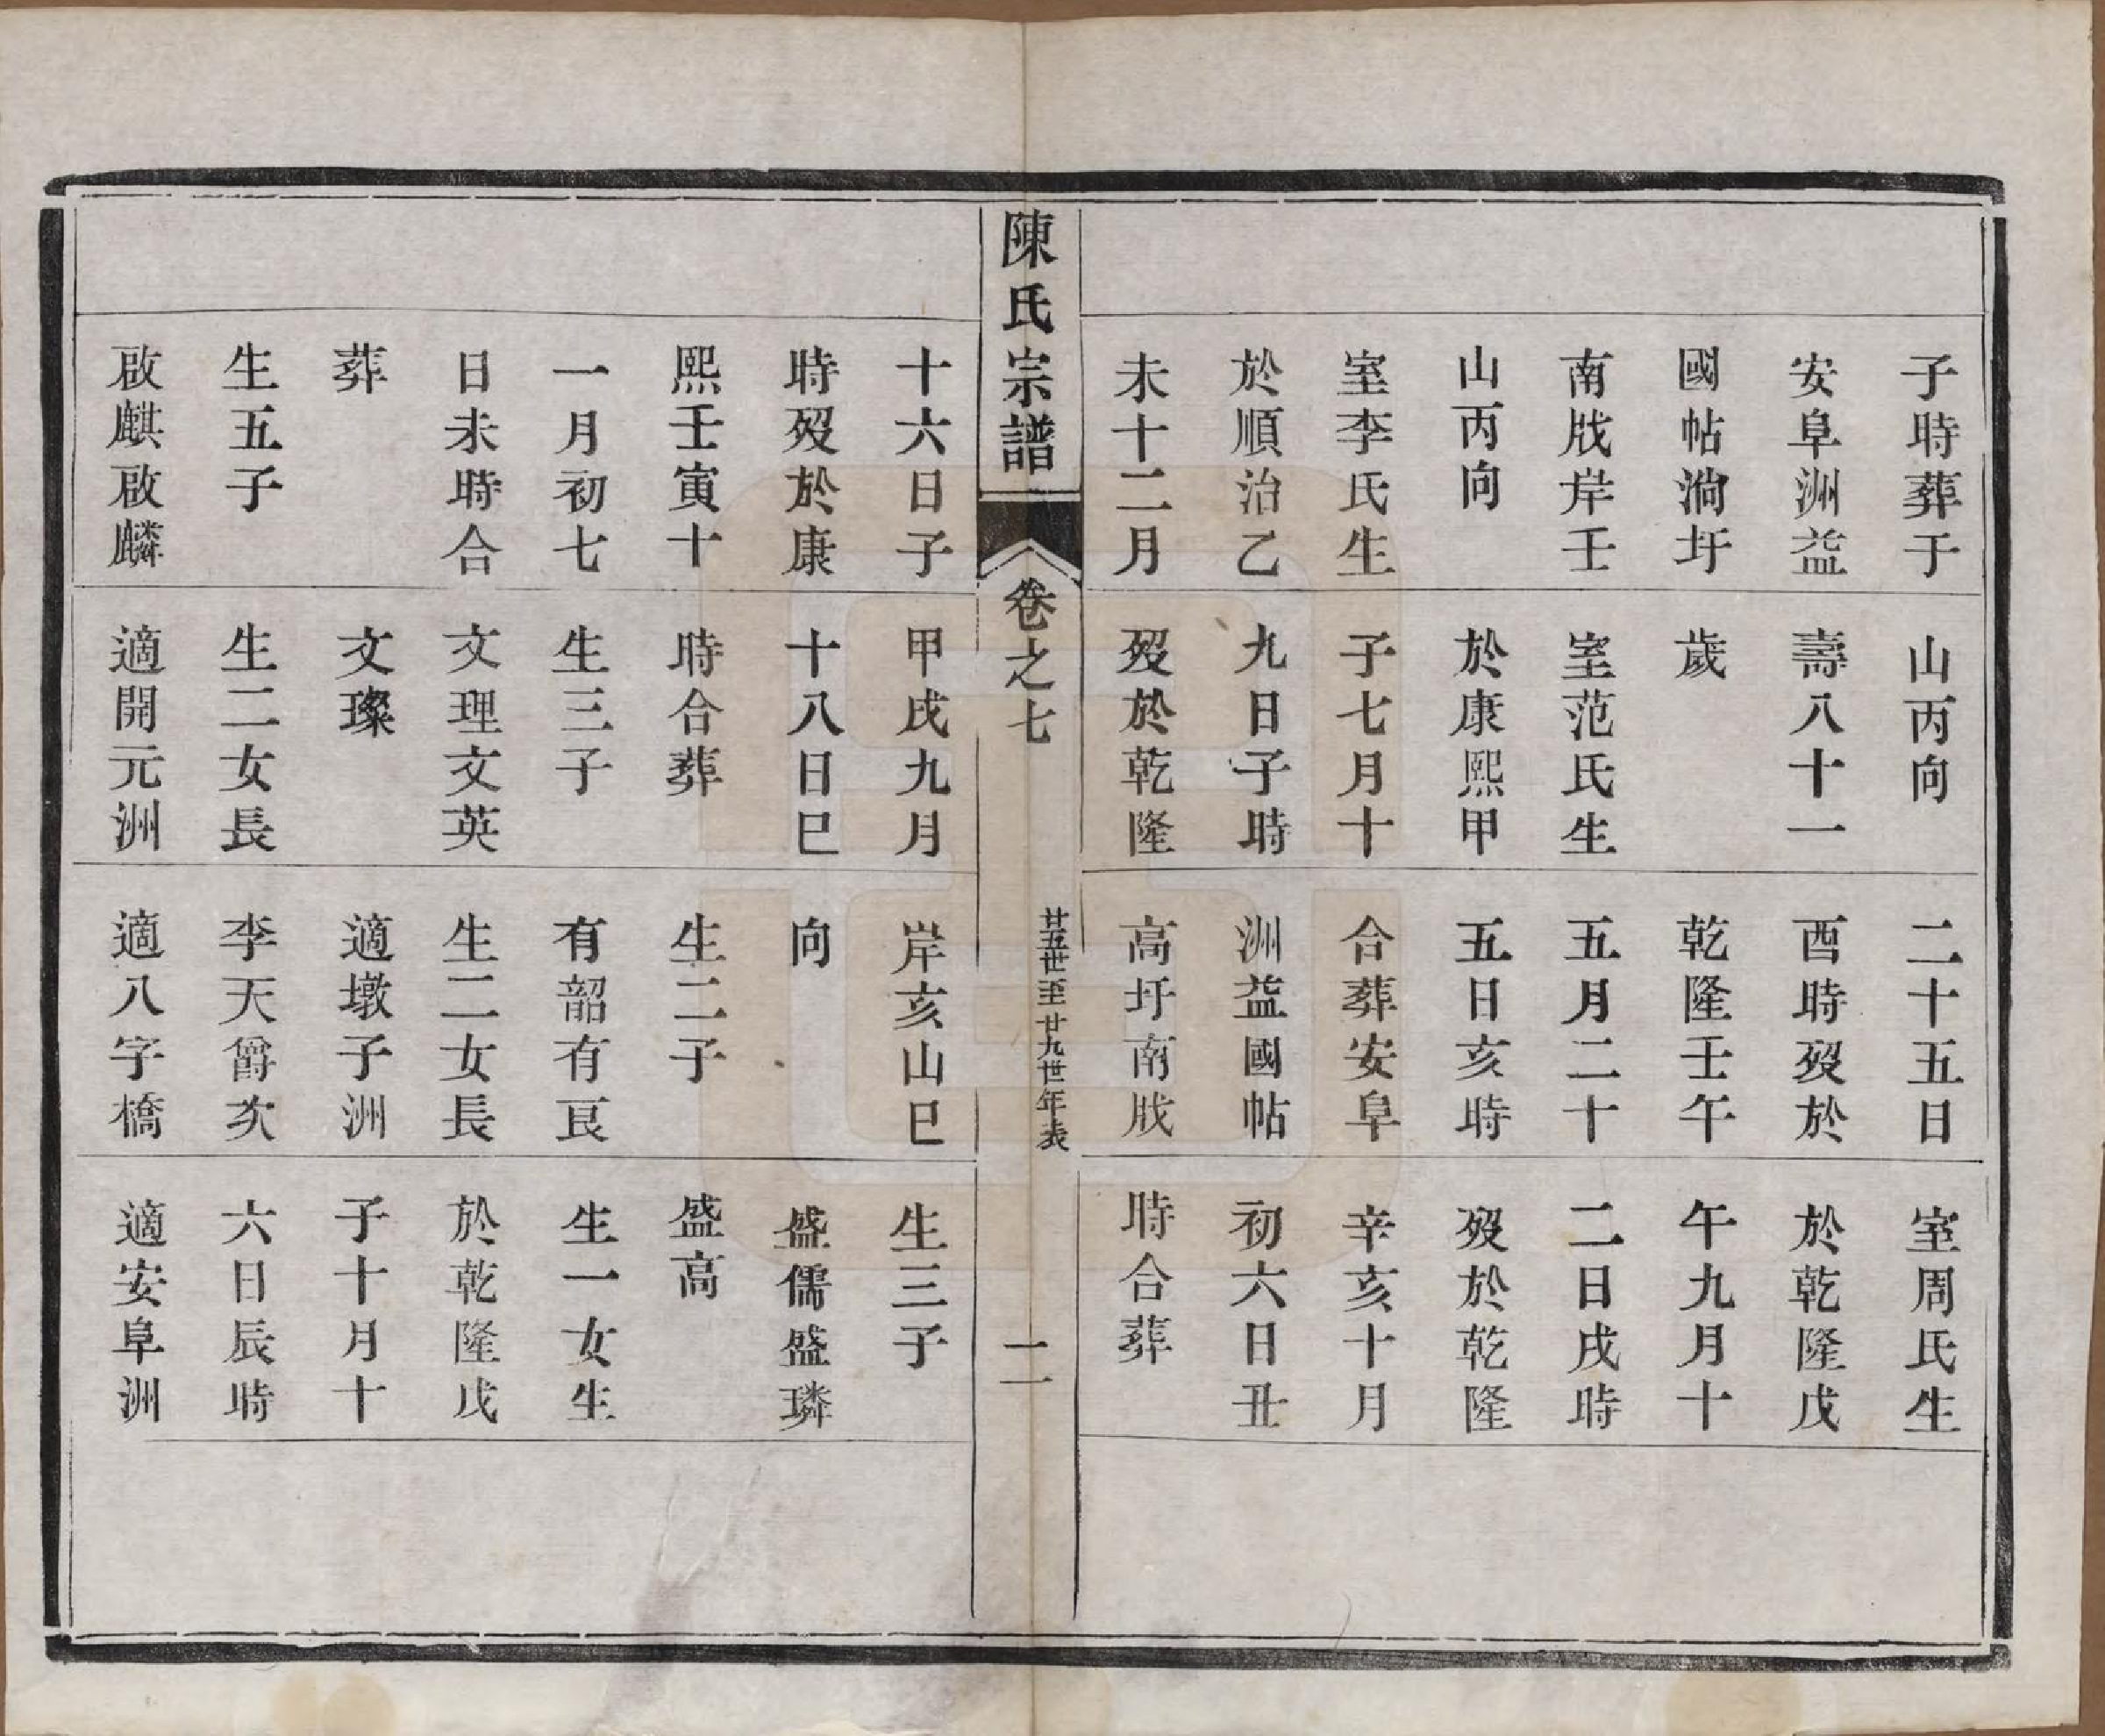 子時葬于
安阜洲益
國帖淌圩
南戕岸壬
山丙向
室李氏生
於順治乙
未十二月
山丙向
壽八十一
歲
室范氏生
於康熙甲
子七月十
九日子時
歿於乾隆
二十五日
酉時歿於
乾隆壬午
五月二十
五日亥時
合葬安阜
洲益國帖
高圩南戕
室周氏生
於乾隆戊
午九月十
二日戌時
歿於乾隆
辛亥十月
初六日丑
時合葬
陳氏宗譜
卷之七
廿五世至廿九世年表
二
十六日子
時歿於康
熙壬寅十
一月初七
日未時合
葬
生五子
啟麒啟麟
甲戌九月
十八日巳
時合葬
生三子
文理文英
文璨
生二女長
適開元洲
岸亥山巳
向
生二子
有韶有良
生二女長
適墩子洲
李天爵次
適八字橋
生三子
盛儒盛璘
盛高
生一女生
於乾隆戊
子十月十
六日辰時
適安阜洲